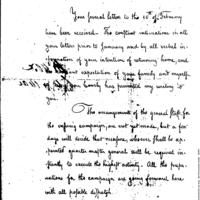 Your several letter to the 10th of February
have been received. The constant intimations in all
your letter prior to January and by all verbal in-
formation of your intention of returning home, and
expectation of your family and myself
family has permitted any writing to
you.
The arrangements of the general staff for
the ensuing campaign, are not yet made, but a few
days will decide that measure, whoever shall be ap-
pointed quarter master general will be required in-
stantly to execute the highest activity. All the prepa-
rations for the campaign are going forward here
with all possible dispatch.